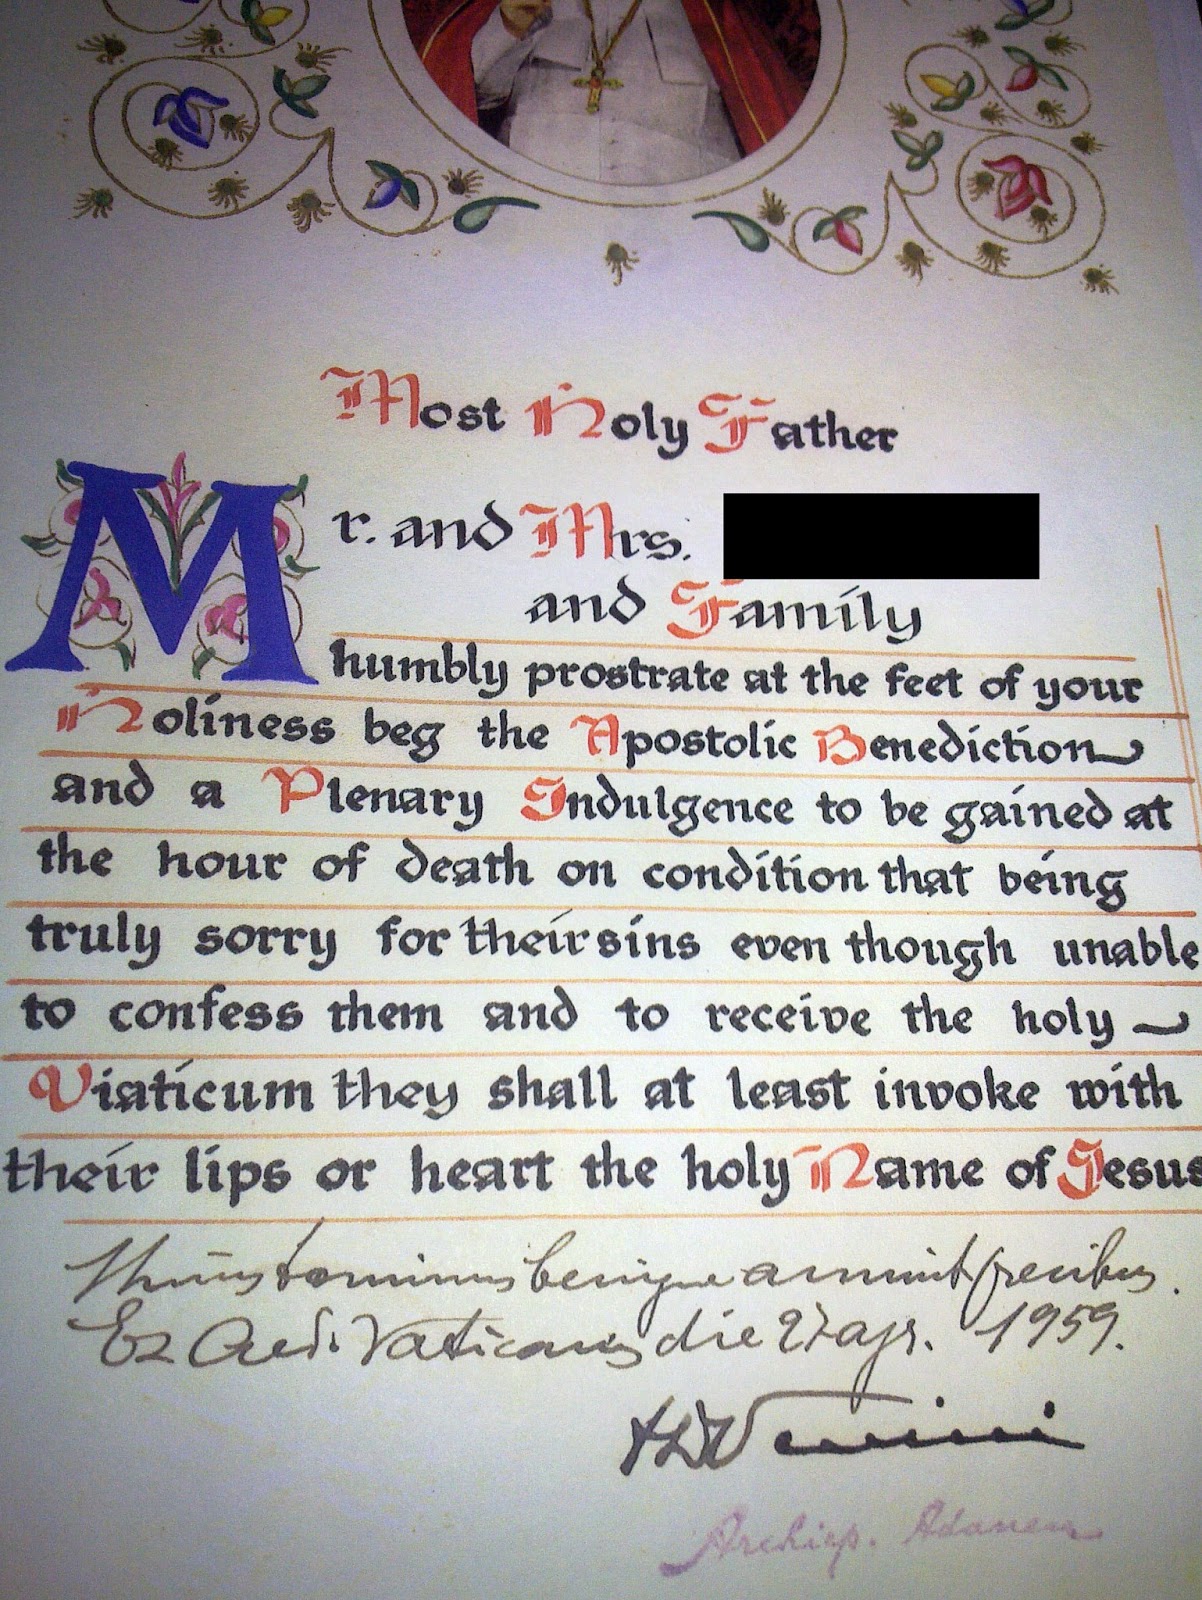 Most Holy Father
Mr. and Mrs.
and Family
humbly prostrate at the feet of your
Holiness beg the Apostolic Benediction
and a Plenary Indulgence to be gained at
the hour of death on condition that being
truly sorry for their sins even though unable
to confess them and to receive the holy
Viaticum they shall at least invoke with
their lips or heart the holy Name of Jesus
Dominus benigne annuit precibus.
Ex Aed. Vaticanis die apr. 1959.
Archiep. Adanen